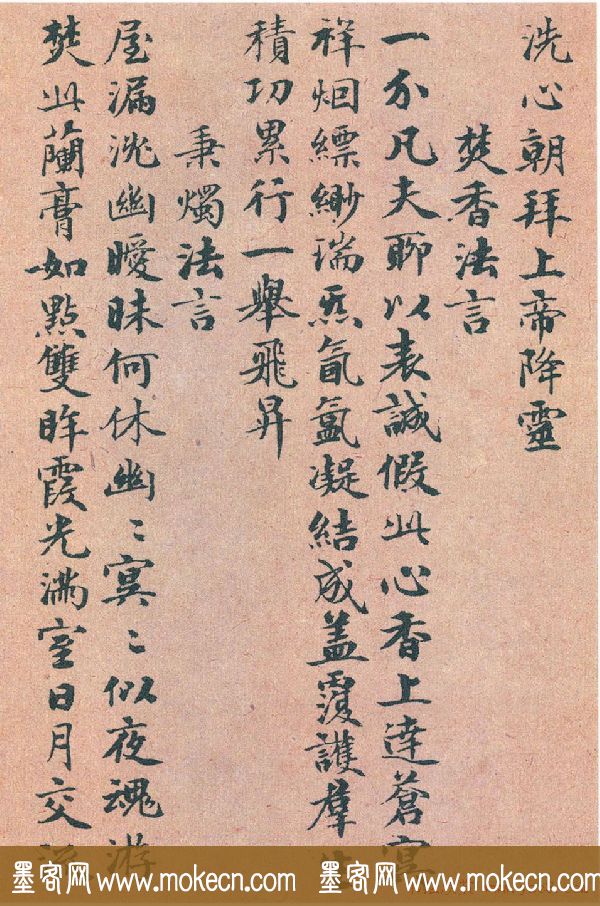 洗心朝拜上帝降靈
焚香法言
一介凡夫聊以表誠假此心香上達蒼冥
祥烟縹緲瑞炁氤氳凝結成蓋覆護羣
積功累行一舉飛昇
秉燭法言
屋漏沈幽曖昧何休幽〻冥〻似夜魂游
焚此蘭膏如點雙眸霞光滿室日月交
墨客网 www.mokecn.com 墨客网 www.mokecn.com